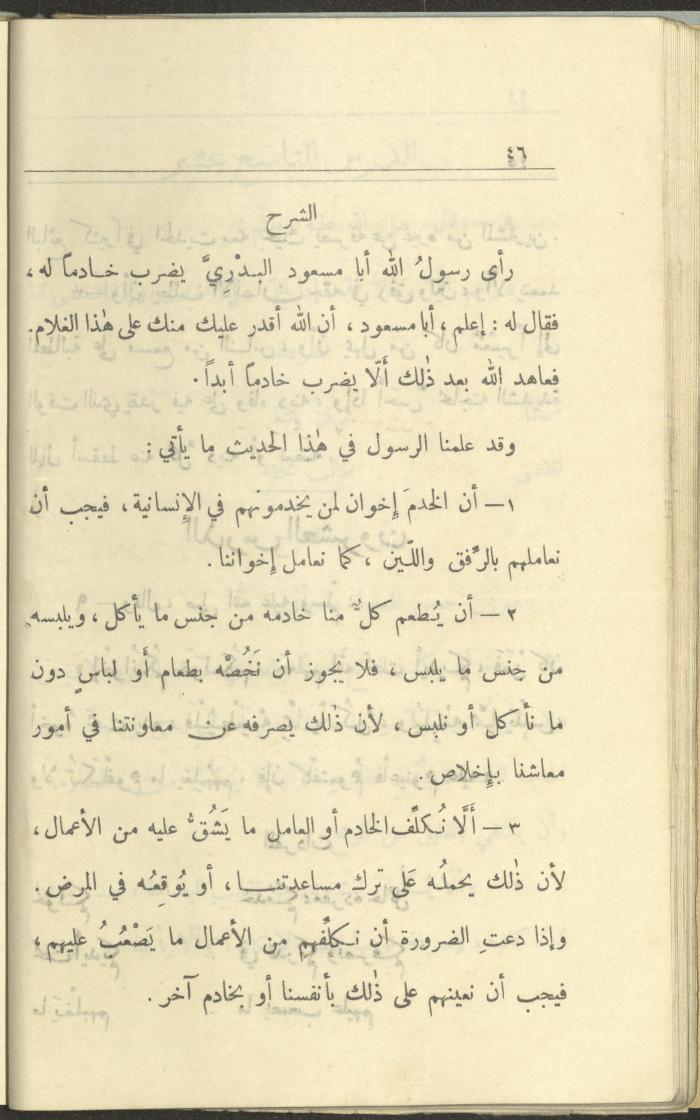 ٤٦
الشرح
رأى رسولُ الله أبا مسعود البدْرِيَّ يضرب خادماً له،
فقال له : إعلم ، أبا مسعود ، أن الله أقدر عليك منك على هٰذا الغلام.
فعاهد الله بعد ذٰلك أَلّا يضرب خادماً أبداً.
وقد علمنا الرسول في هٰذا الحديث ما يأتي :
١ — أن الخدمَ إخوان لمن يخدمونهم في الإنسانية ، فيجب أن
نعاملهم بالرِّفق واللّين ، كما نعامل إخواننا .
٢ — أن يُطعم كلٌّ منا خادمه من جنس ما يأكل ، ويلبسه
من جنس ما يلبس ، فلا يجوز أن نَخُصَّه بطعام أَو لباسٍ دون
ما نأكل أو نلبس ، لأن ذٰلك يصرفه عن معاونتنا في أمور
معاشنا بإخلاص .
٣ — أَلَّا نُكلِّف الخادم أو العامل ما يَشُقُّ عليه من الأعمال ،
لأن ذٰلك يحملُه عَلى ترك مساعدتنا ، أو يُوقِعُه في المرض .
وإذا دعتِ الضرورة أن نكلِّفهم من الأعمال ما يَصْعُبُ عليهم ،
فيجب أن نعينهم على ذٰلك بأنفسنا أو بخادم آخر .